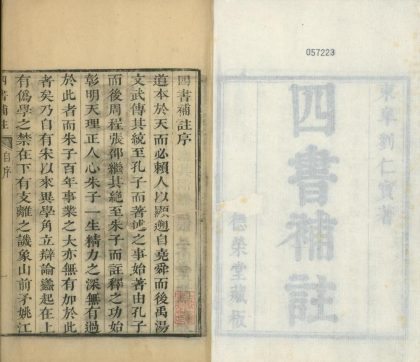 057223
東阜劉仁寶著
四書補註
德榮堂藏板
四書補註序
道本於天而必賴人以顯迺自堯舜而後禹湯
文武傳其統至孔子而著述之事始著由孔子
而後周程張邵繼其絶至朱子而註釋之功始
彰明天理正人心朱子一生精力之深無有過
於此者而朱子百年事業之大亦無有加於此
者矣乃自有宋以來異學角立辯論蠭起在上
有僞學之禁在下有支離之譏象山前矛姚江
四書補註
自序